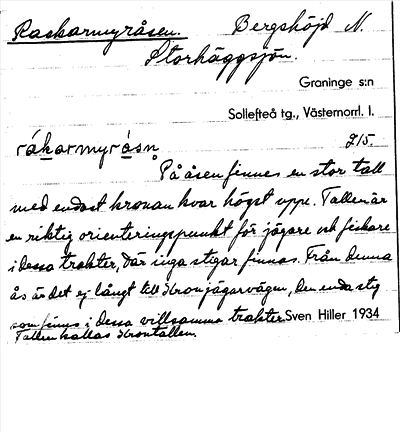 Raskarmyråsen. Bergshöjd N.
Storhäggsjön.
Graninge s:n
Sollefteå tg., Västernorrl. l.
råkarmyråsn 215.
På åsen finnes en stor tall
med endast kronan kvar högst uppe. Tallen är
en riktig orienteringspunkt för jägare och fiskare
i dessa trakter, där inga stigar finnas. Från denna
ås är det ej långt till Kronjägarvägen, den enda stig
som finns i dessa villsamma trakter. Sven Hiller 1934
Tallen kallas Krontallen.